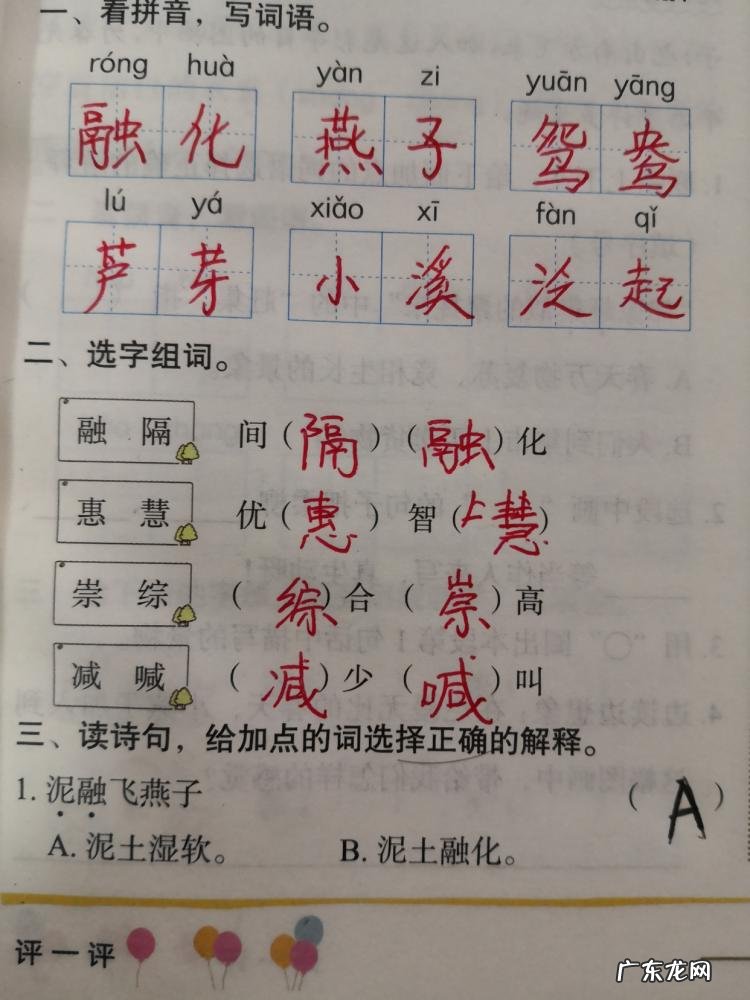 一、看拼音，写词语。
róng huà yàn zi yuān yāng
融化 燕子 鸳鸯
lú yá xiǎo xī fàn qǐ
芦芽 小溪 泛起
二、选字组词。
融 隔 间（隔）（融）化
惠 慧 优（惠）智（慧）
崇 综 （综）合（崇）高
减 喊 （减）少（喊）叫
三、读诗句，给加点的词选择正确的解释。
1. 泥融飞燕子 （A）
A. 泥土湿软。 B. 泥土融化。
评一评
广东龙网